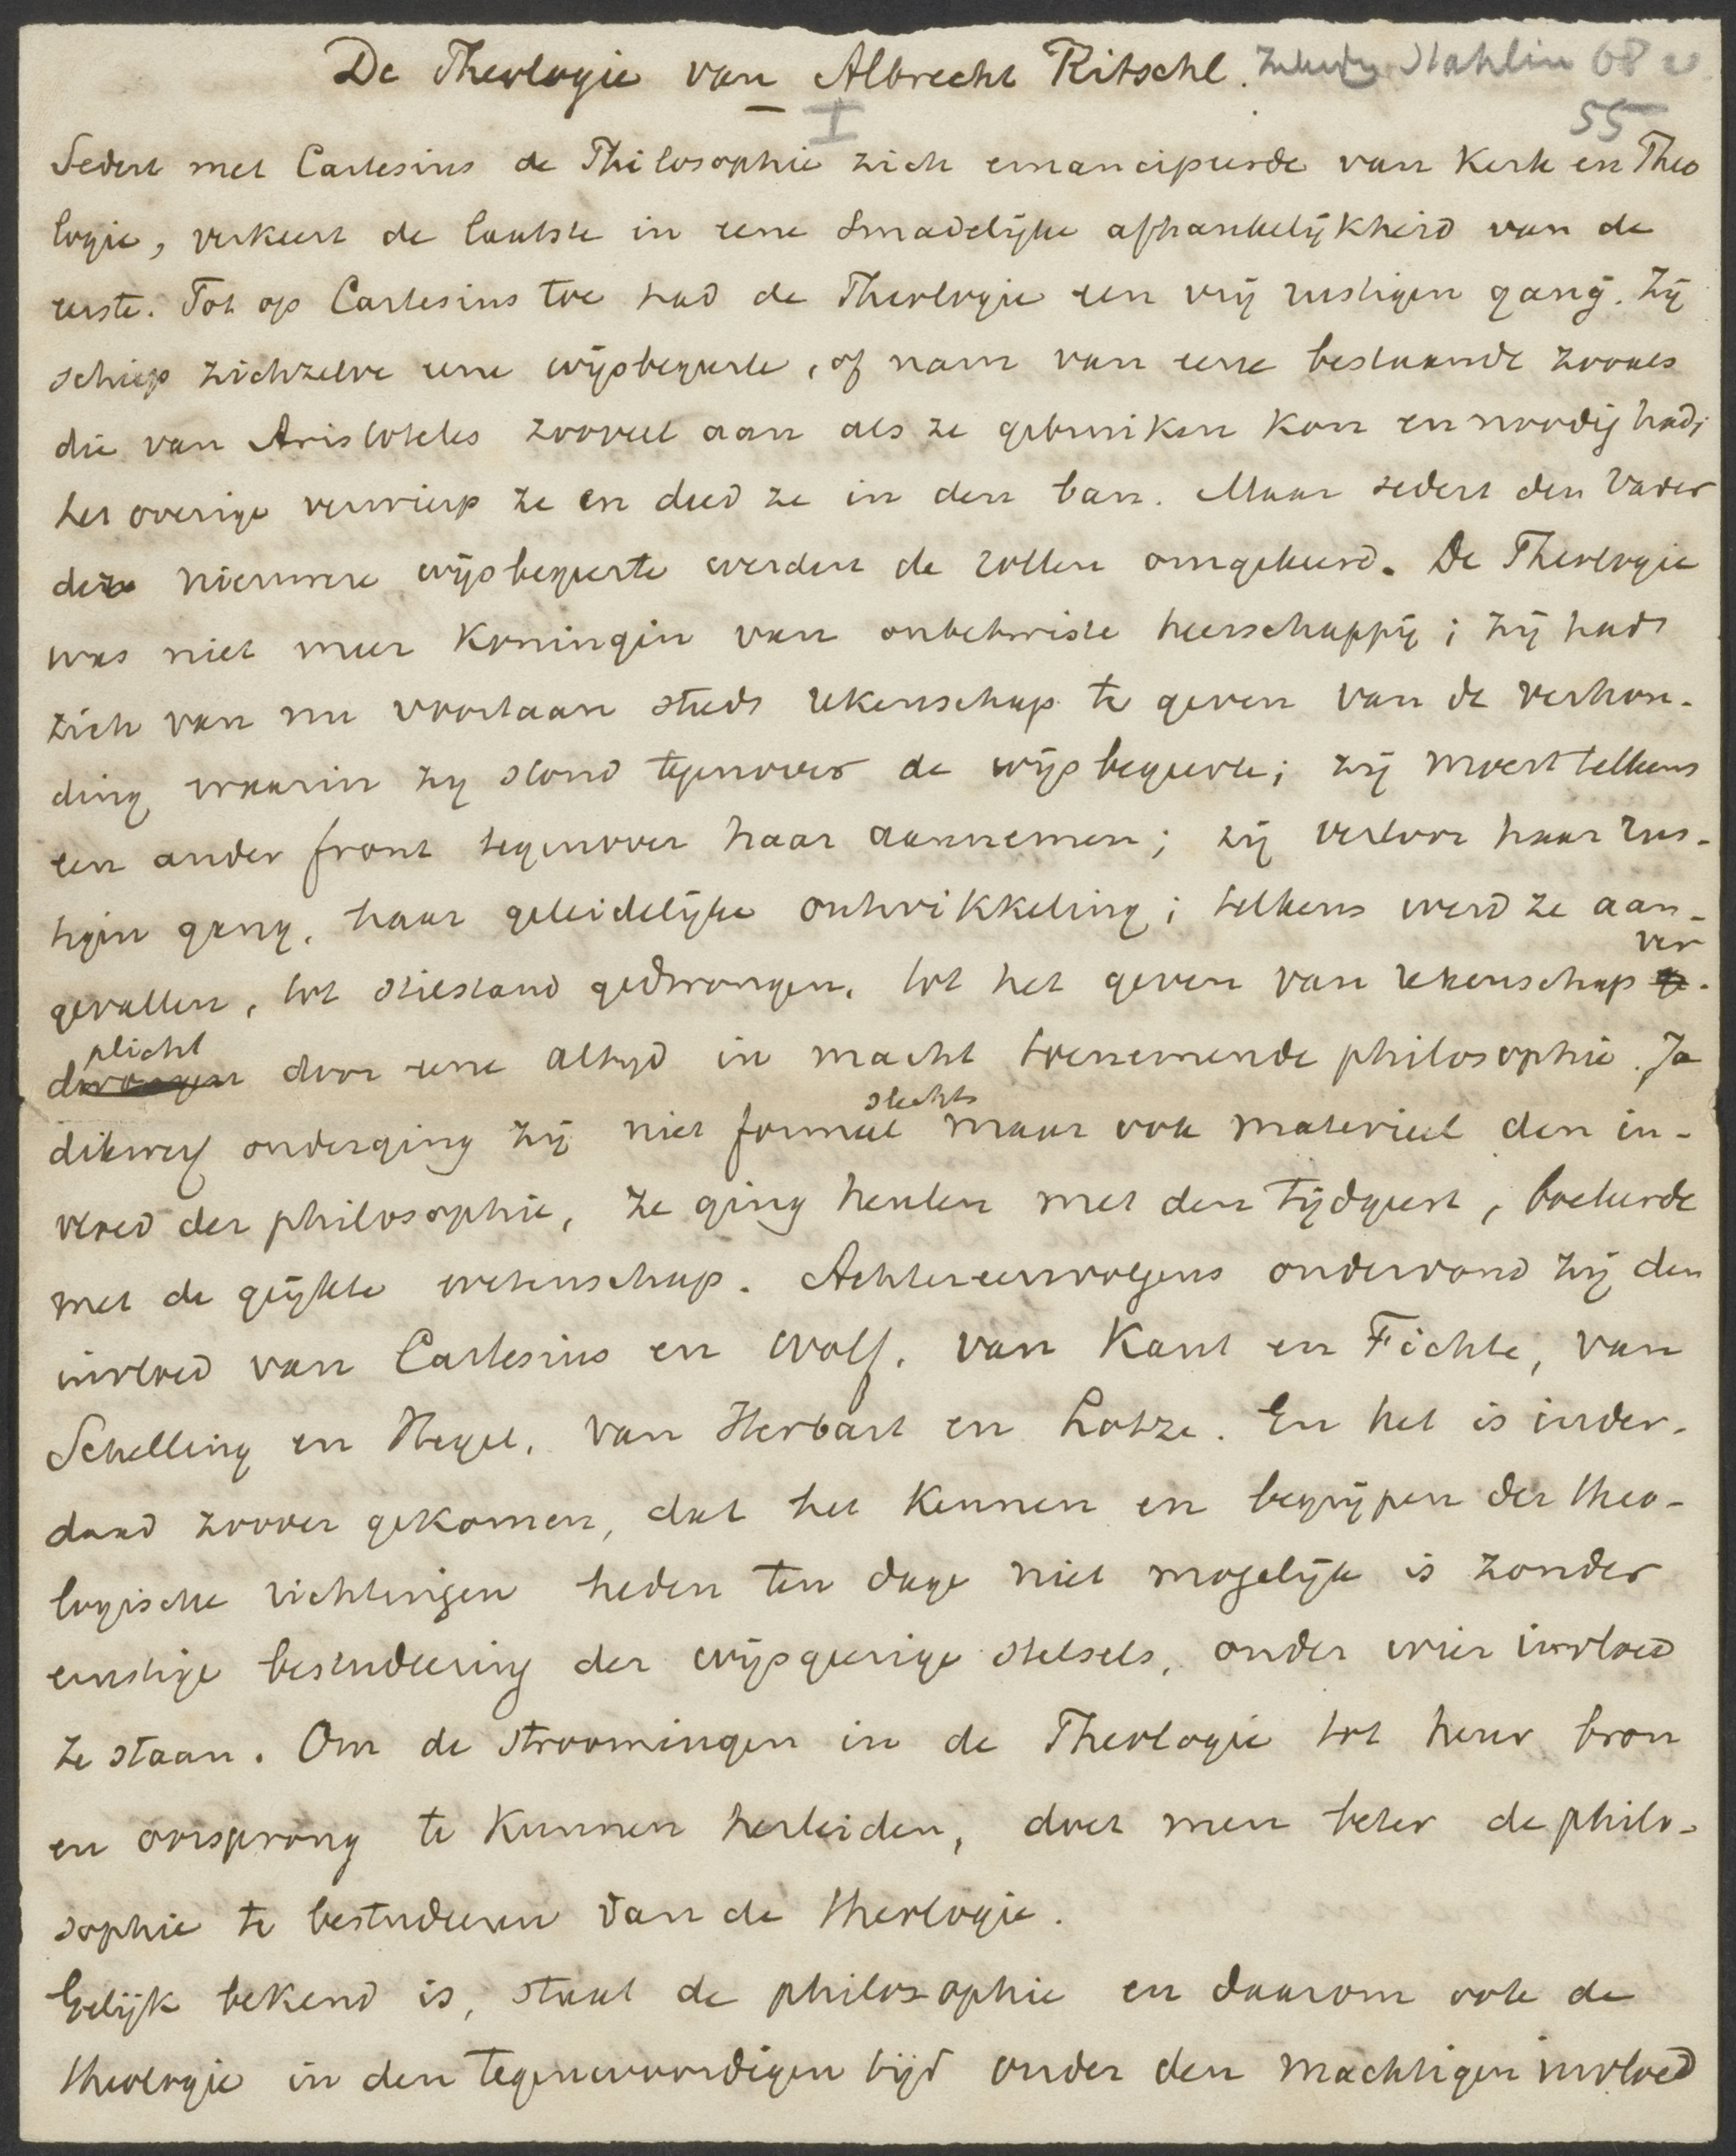 De Theologie van Albrecht Ritschl. Stahlin 68 v
I 55
Sedert met Cartesius de Philosophie zich emancipeerde van Kerk en Theo
logie, verkeert de laatste in eene smadelijke afhankelijkheid van de
eerste. Tot op Cartesius toe had de Theologie een vrij rustigen gang. Zij
schiep zichzelve eene wijsbegeerte, of nam van eene bestaande zooals
die van Aristoteles zooveel aan als ze gebruiken kon en noodig had;
het overige verwierp ze en deed ze in den ban. Maar sedert den Vader
deze nieuwere wijsbegeerte werden de rollen omgekeerd. De Theologie
was niet meer Koningin van onbetwiste heerschappij; zij had
zich van nu voortaan steeds rekenschap te geven van de verhou-
ding waarin zij stond tegenover de wijsbegeerte; zij moest telkens
een ander front tegenover haar aannemen; zij verloor haar rus-
tigen gang, haar geleidelijke ontwikkeling; telkens werd ze aan-
gevallen, tot stilstand gedwongen, tot het geven van rekenschap ge- ver
dwongen plicht door eene altijd in macht toenemende philosophie. Ja
dikwerf onderging zij niet formeel slechts maar ook materieel den in-
vloed der philosophie, ze ging heulen met den tijdgeest, boeleerde
met de geijkte wetenschap. Achtereenvolgens ondervond zij den
invloed van Cartesius en Wolf, van Kant en Fichte, van
Schelling en Hegel, van Herbart en Lotze. En het is inder-
daad zoover gekomen, dat het kennen en begrijpen der theo-
logische richtingen heden ten dage niet mogelijk is zonder
ernstige bestudeering der wijsgeerige stelsels, onder wier invloed
ze staan. Om de stroomingen in de Theologie tot heur bron
en oorsprong te kunnen herleiden, doet men beter de philo-
sophie te bestudeeren dan de theologie.
Gelijk bekend is, staat de philosophie en daarom ook de
theologie in den tegenwoordigen tijd onder den machtigen invloed